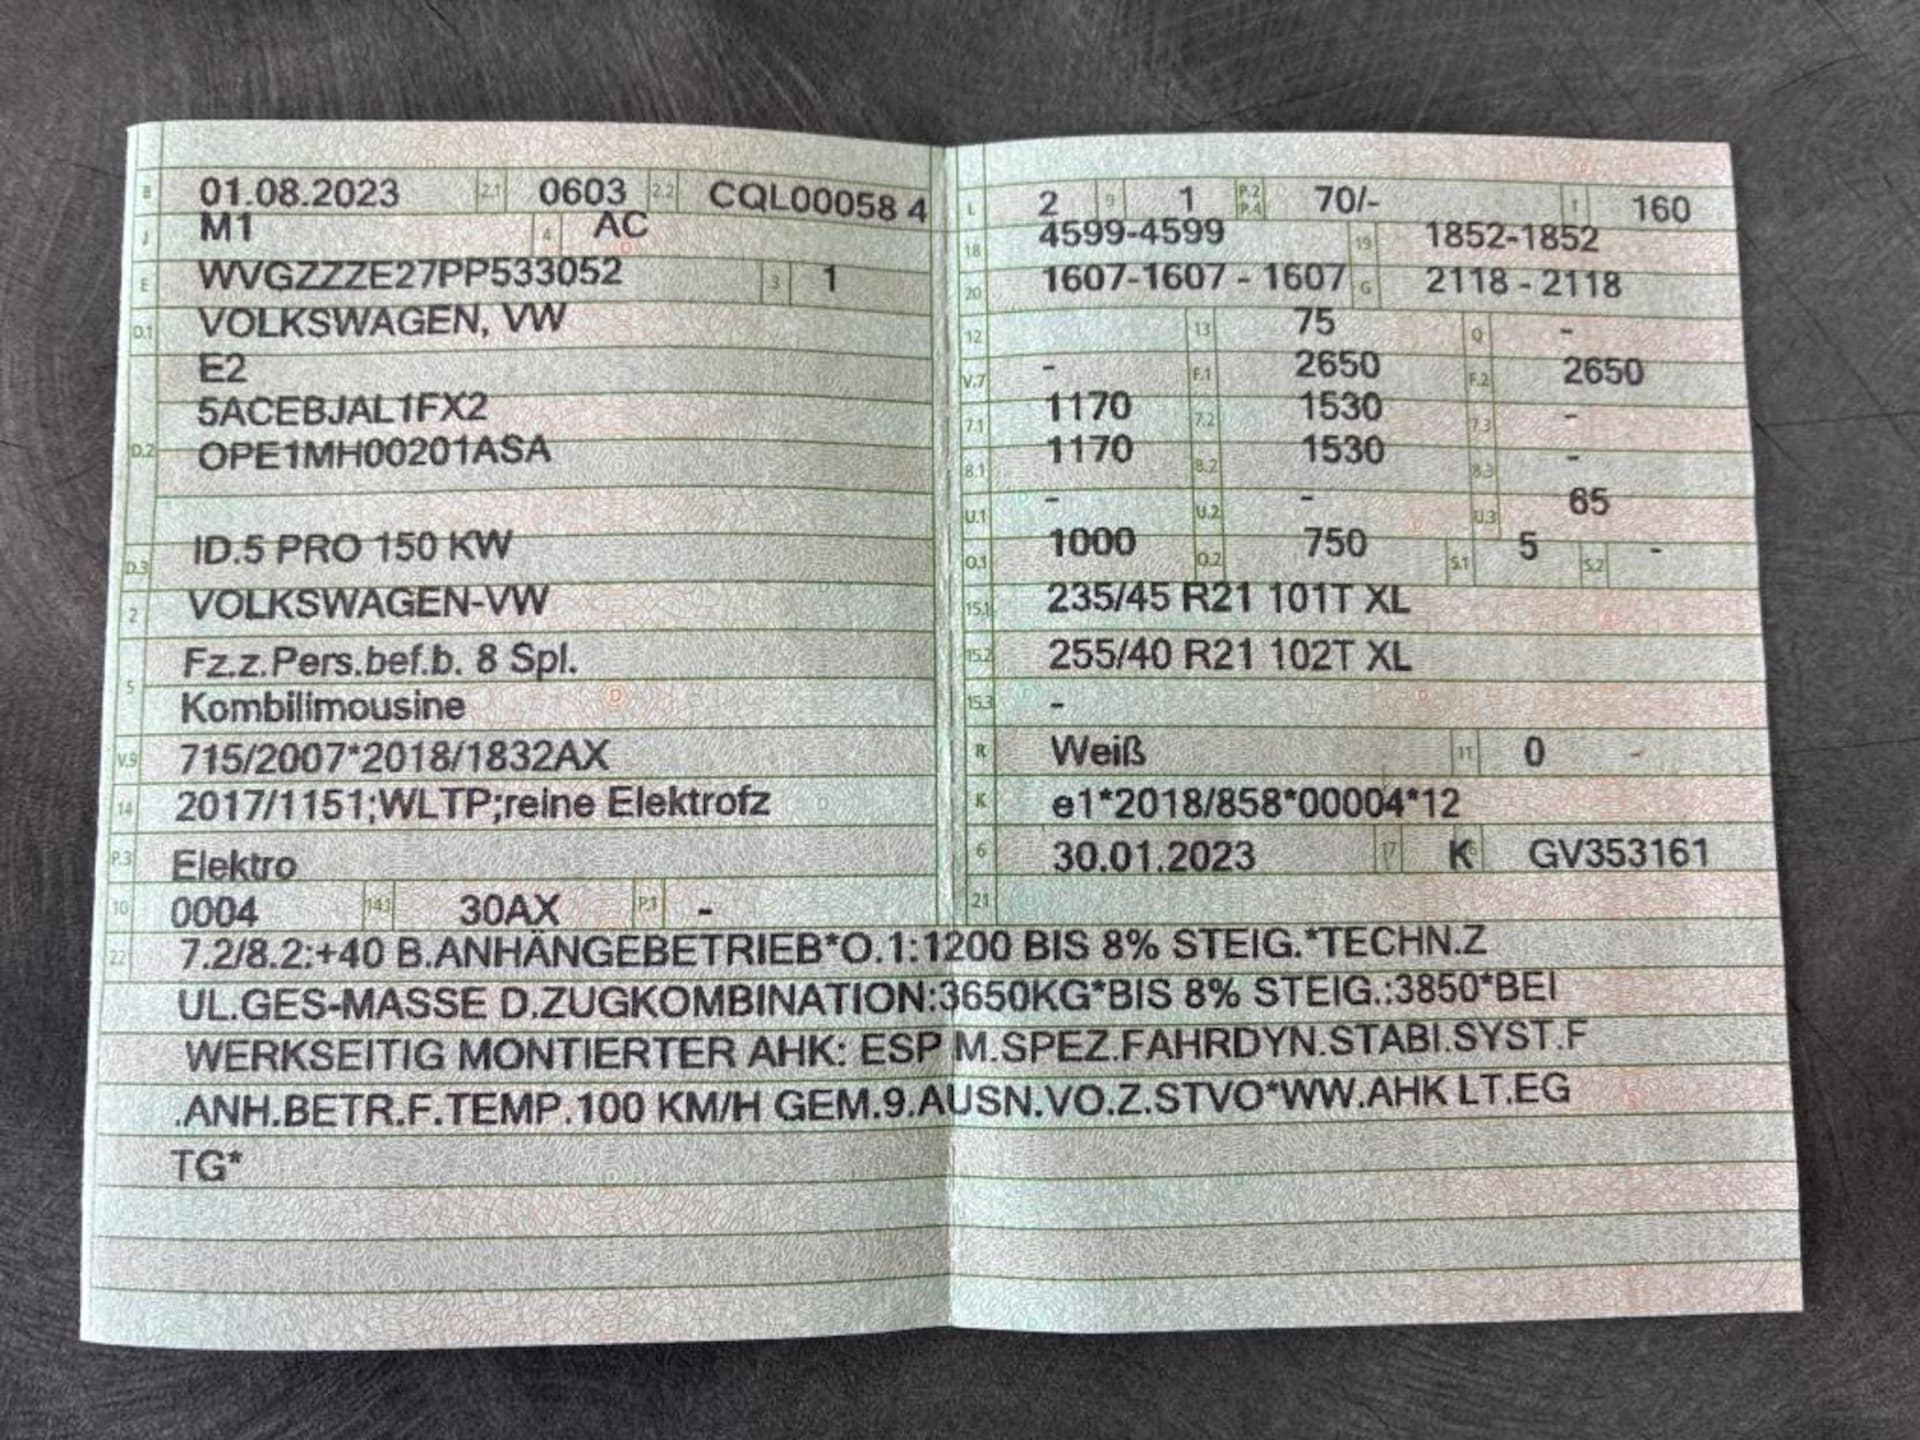 B 01.08.2023 2.1 0603 2.2 CQL00058 4
J M1 4 AC
E WVGZZZE27PP533052 3 1
D.1 VOLKSWAGEN, VW
E2
5ACEBJAL1FX2
D.2 OPE1MH00201ASA
D.3 ID.5 PRO 150 KW
2 VOLKSWAGEN-VW
Fz.z.Pers.bef.b. 8 Spl.
5 Kombilimousine
V.9 715/2007*2018/1832AX
14 2017/1151;WLTP;reine Elektrofz
P.3 Elektro
10 0004 14.1 30AX P.1 -
L 2 9 1 P.2 P.4 70/- T 160
18 4599-4599 19 1852-1852
20 1607-1607 - 1607 G 2118 - 2118
12 13 75 Q -
V.7 - F.1 2650 F.2 2650
7.1 1170 7.2 1530 7.3 -
8.1 1170 8.2 1530 8.3 -
U.1 - U.2 - U.3 65
O.1 1000 O.2 750 S.1 5 S.2 -
15.1 235/45 R21 101T XL
15.2 255/40 R21 102T XL
15.3 -
R Weiß 11 0 -
K e1*2018/858*00004*12
6 30.01.2023 17 K 16 GV353161
21
22 7.2/8.2:+40 B.ANHÄNGEBETRIEB*O.1:1200 BIS 8% STEIG.*TECHN.Z
UL.GES-MASSE D.ZUGKOMBINATION:3650KG*BIS 8% STEIG.:3850*BEI
WERKSEITIG MONTIERTER AHK: ESP M.SPEZ.FAHRDYN.STABI.SYST.F
.ANH.BETR.F.TEMP.100 KM/H GEM.9.AUSN.VO.Z.STVO*WW.AHK LT.EG
TG*